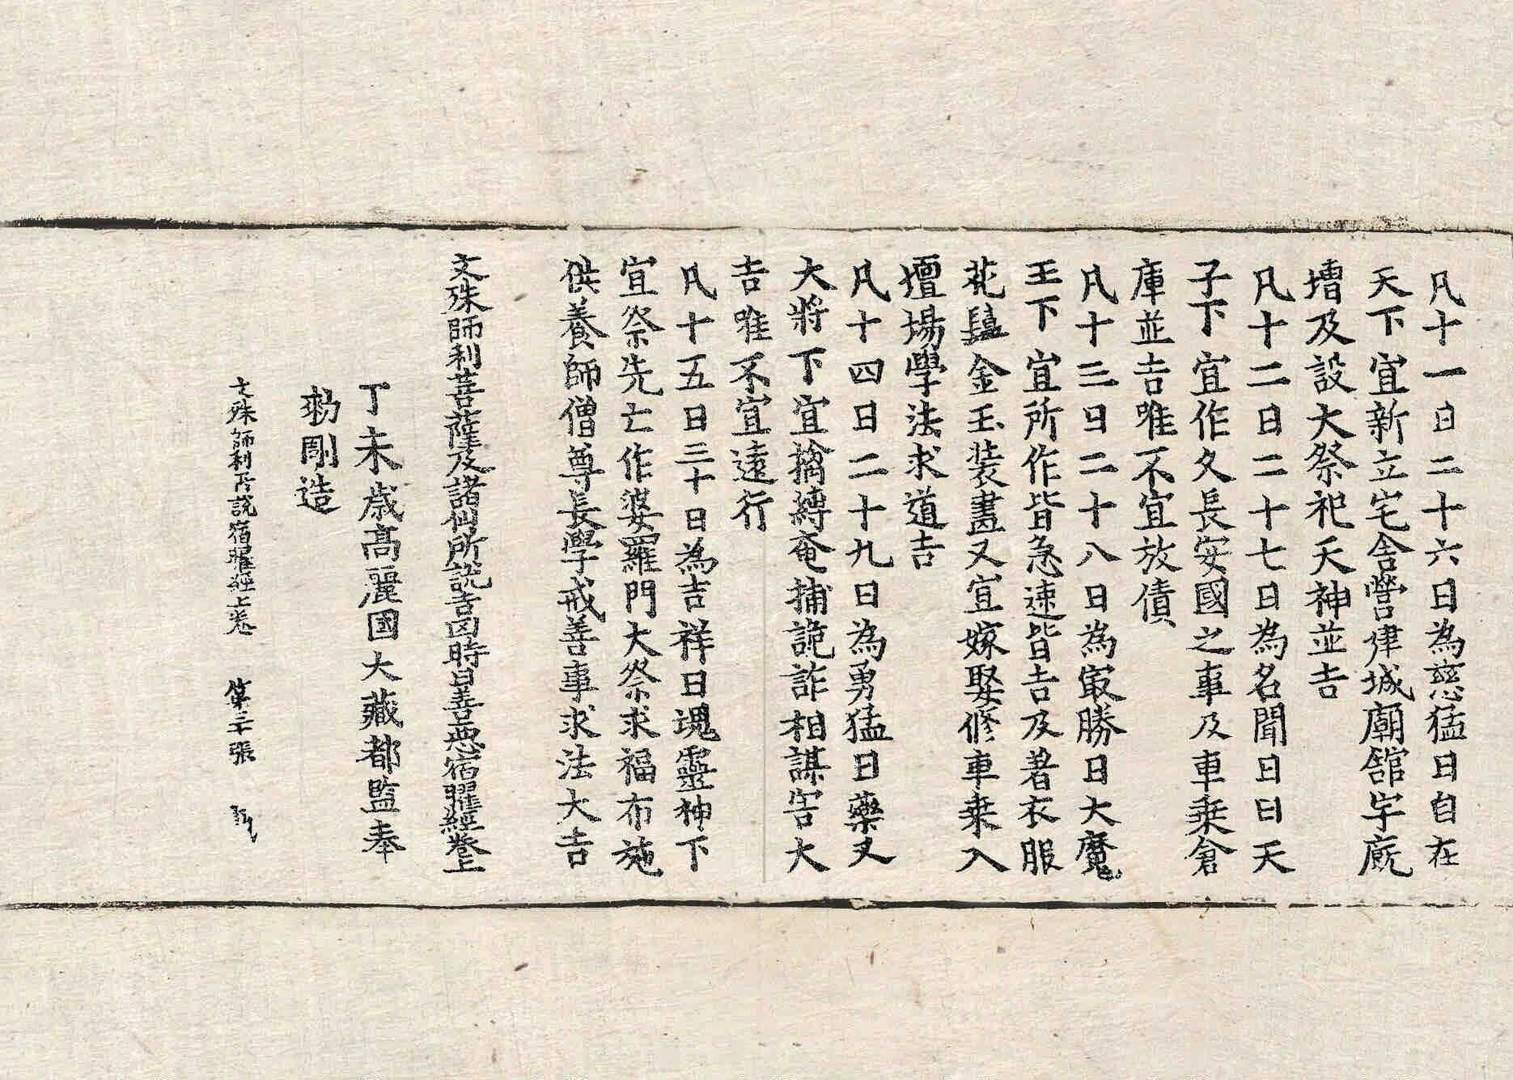 凡十一日二十六日為慈猛日自在
天下宜新立宅舍營建城廟館宇厩
墻及設大祭祀天神並吉
凡十二日二十七日為名聞日日天
子下宜作久長安國之事及車乗倉
庫並吉唯不宜放債
凡十三日二十八日為冣勝日大魔
王下宜所作皆急速皆吉及著衣服
花鬘金玉装畫又宜嫁娶修車乗入
壇場學法求道吉
凡十四日二十九日為勇猛日藥叉
大將下宜擒縛奄捕詭詐相謀害大
吉唯不宜遠行
凡十五日三十日為吉祥日魂靈神下
宜祭先亡作婆羅門大祭求福布施
供養師僧尊長學戒善事求法大吉
文殊師利菩薩及諸仙所說吉凶時日善惡宿曜經卷上
丁未歲高麗國大藏都監奉
勑彫造
文殊師利所說宿曜經上卷 第三十張